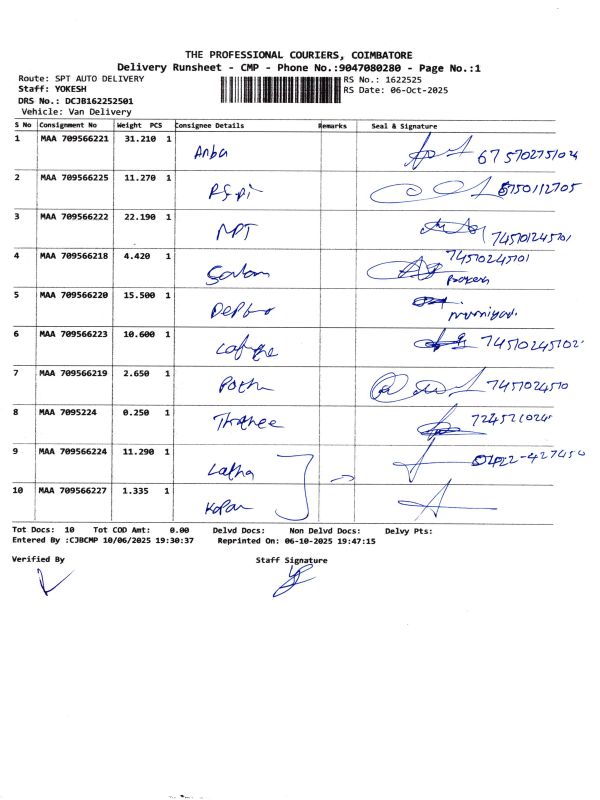 THE PROFESSIONAL COURIERS, COIMBATORE
Delivery Runsheet - CMP - Phone No.:9047080280 - Page No.:1
Route: SPT AUTO DELIVERY RS No.: 1622525
Staff: YOKESH RS Date: 06-Oct-2025
DRS No.: DCJB162252501
Vehicle: Van Delivery
S No Consignment No Weight PCS Consignee Details Remarks Seal & Signature
1 MAA 709566221 31.210 1 Anba
2 MAA 709566225 11.270 1 8750112705
3 MAA 709566222 22.190 1 NPT 745701245701
4 MAA 709566218 4.420 1 74570245701
5 MAA 709566220 15.500 1
6 MAA 709566223 10.600 1
7 MAA 709566219 2.650 1 7457024570
8 MAA 7095224 0.250 1
9 MAA 709566224 11.290 1 Latha
10 MAA 709566227 1.335 1
Tot Docs: 10 Tot COD Amt: 0.00 Delvd Docs: Non Delvd Docs: Delvy Pts:
Entered By :CJBCMP 10/06/2025 19:30:37 Reprinted On: 06-10-2025 19:47:15
Verified By Staff Signature